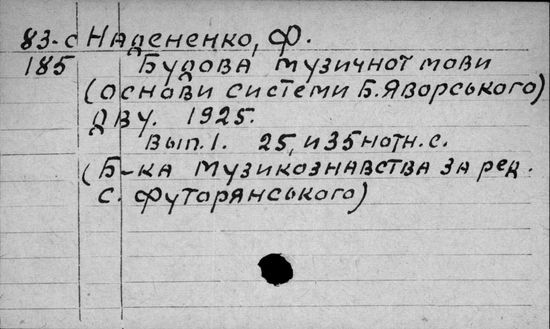 83-с Надененко, Ф.
185 Будова музичноï мови
(основи системи Б.Яворського)
ДВУ. 1925.
Вып.1. 25, и 35 нотн. с.
(Б-ка музикознавства за ред.
С. Футорянського)